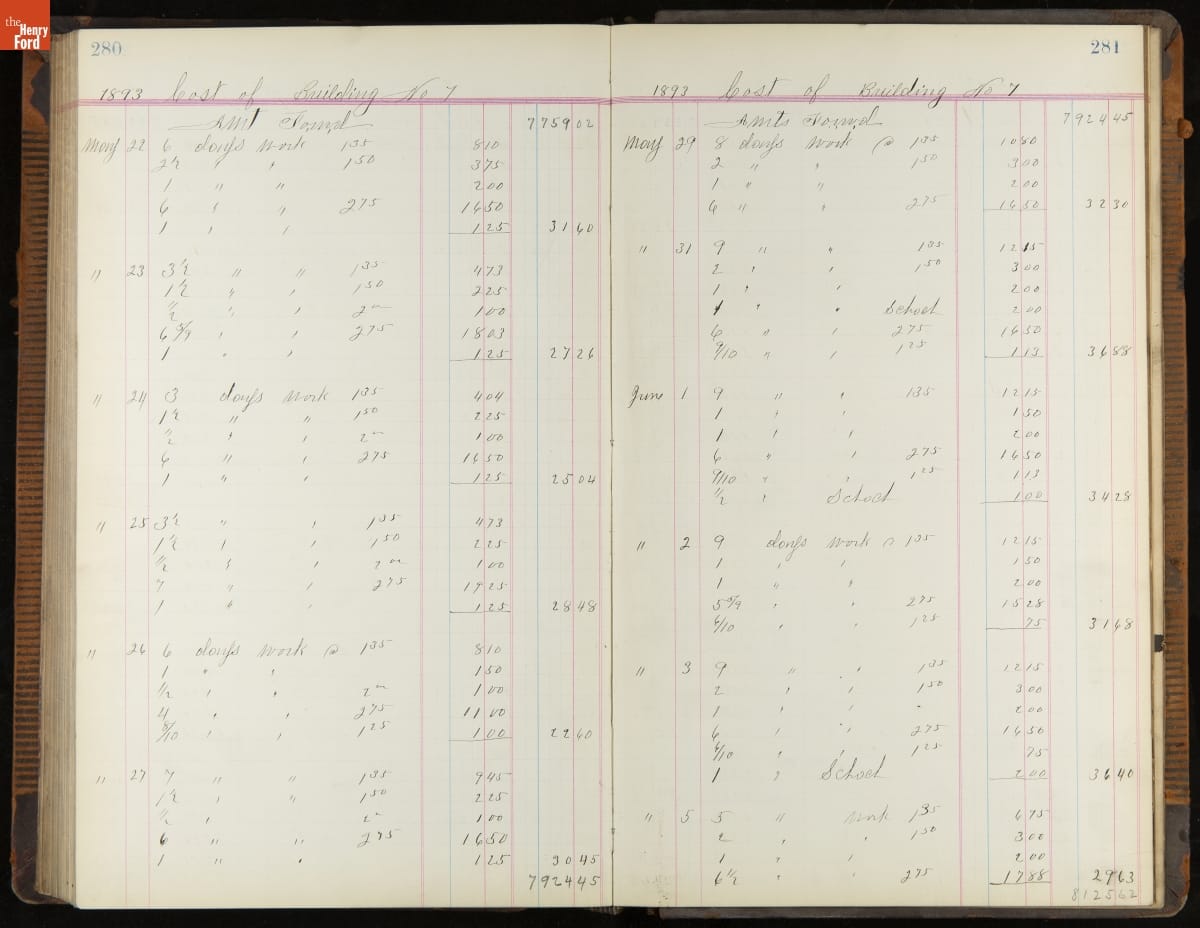 the
Henry
Ford
280
1893 Cost of Building No 7
Amt Forwd 7759 02
May 22 6 days work 1 35 8 10
2 1/2 " " 1 50 3 75
1 " " 2 00
6 " " 2 75 16 50
1 " " 1 25 31 60
" 23 3 1/2 " " 1 35 4 73
1 1/2 " " 1 50 2 25
1/2 " " 2 00 1 00
6 5/9 " " 2 75 18 03
1 " " 1 25 27 26
" 24 3 days work 1 35 4 04
1 1/2 " " 1 50 2 25
1/2 " " 2 00 1 00
6 " " 2 75 16 50
1 " " 1 25 25 04
" 25 3 1/2 " " 1 35 4 73
1 1/2 " " 1 50 2 25
1/2 " " 2 00 1 00
7 " " 2 75 19 25
1 " " 1 25 28 48
" 26 6 days work @ 1 35 8 10
1 " " 1 50
1/2 " " 2 00 1 00
4 " " 2 75 11 00
8/10 " " 1 25 1 00 22 60
" 27 7 " " 1 35 9 45
1 1/2 " " 1 50 2 25
1/2 " 2 00 1 00
6 " " 2 75 16 50
1 " " 1 25 30 45
7924 45
281
1893 Cost of Building No 7
Amts Forwd 7924 45
May 29 8 days work @ 1 35 10 80
2 " " 1 50 3 00
1 " " 2 00
6 " " 2 75 16 50 32 30
" 31 9 " " 1 35 12 15
2 " " 1 50 3 00
1 " " 2 00
1 " " School 2 00
6 " " 2 75 16 50
9/10 " " 1 25 1 13 36 88
June 1 9 " " 1 35 12 15
1 " " 1 50
1 " " 2 00
6 " " 2 75 16 50
9/10 " " 1 25 1 13
1/2 " School 1 00 34 28
" 2 9 days work @ 1 35 12 15
1 " " 1 50
1 " " 2 00
5 5/9 " " 2 75 15 28
6/10 " " 1 25 75 31 68
" 3 9 " " 1 35 12 15
2 " " 1 50 3 00
1 " " 2 00
6 " " 2 75 16 50
6/10 " " 1 25 75
1 " School 2 00 36 40
" 5 5 " work 1 35 6 75
2 " " 1 50 3 00
1 " " 2 00
6 1/2 " " 2 75 17 88 29 63
8125 62